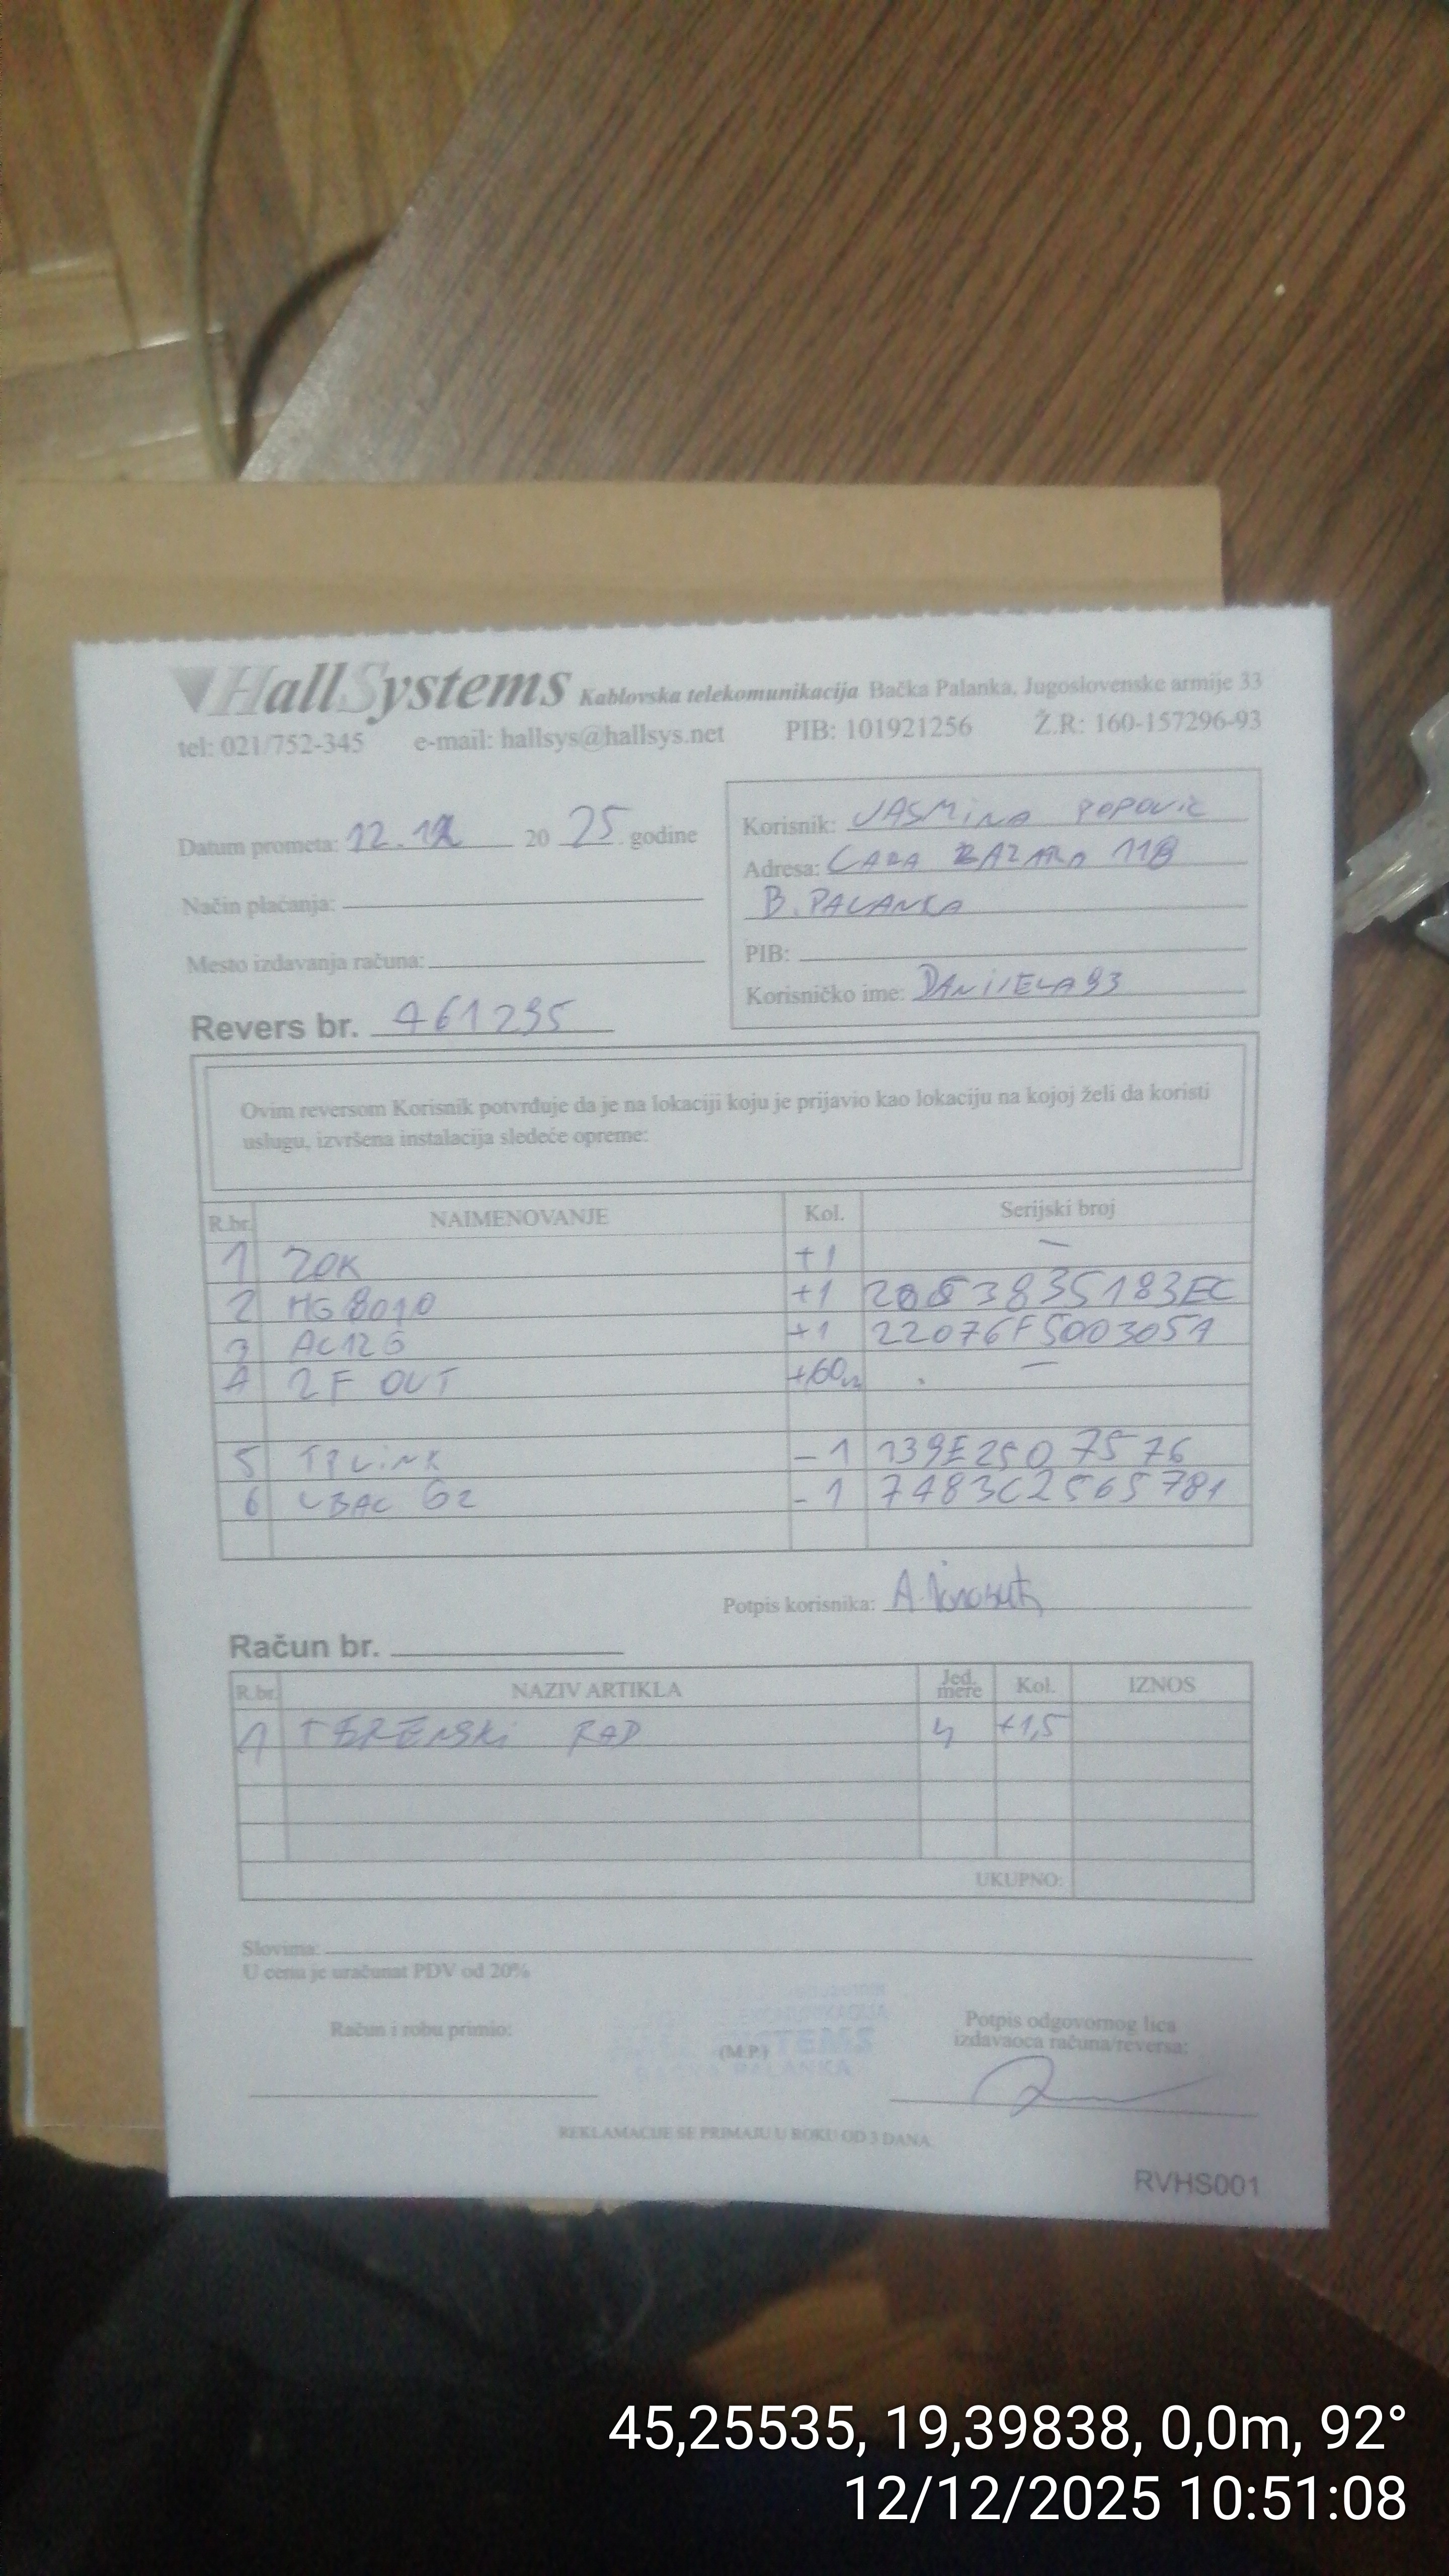 HallSystems Kablovska telekomunikacija Bačka Palanka, Jugoslovenske armije 33
tel: 021/752-345 e-mail: hallsys@hallsys.net PIB: 101921256 Ž.R: 160-157296-93
Datum prometa: 12.12 20 25 godine
Način plaćanja:
Mesto izdavanja računa:
Revers br. 461295
Korisnik: JASMINA POPOVIC
Adresa: CARA LAZARA 118
B. PALANKA
PIB:
Korisničko ime: DANIJELA93
Ovim reversom Korisnik potvrđuje da je na lokaciji koju je prijavio kao lokaciju na kojoj želi da koristi
uslugu, izvršena instalacija sledeće opreme:
R.br. NAIMENOVANJE Kol. Serijski broj
1 ZOK +1 —
2 HG8010 +1
3 AC12G +1 22076F5003051
4 2F OUT +60m —
5 TPLINK -1 139E2507576
6 LBAC G2 -1 7483C2565781
Potpis korisnika:
Račun br.
R.br. NAZIV ARTIKLA Jed. mere Kol. IZNOS
1 TERENSKI RAD h +1,5
UKUPNO:
Slovima:
U cenu je uračunat PDV od 20%
Račun i robu primio:
(M.P.)
Potpis odgovornog lica
izdavaoca računa/reversa:
REKLAMACIJE SE PRIMAJU U ROKU OD 3 DANA.
RVHS001
45,25535, 19,39838, 0,0m, 92°
12/12/2025 10:51:08